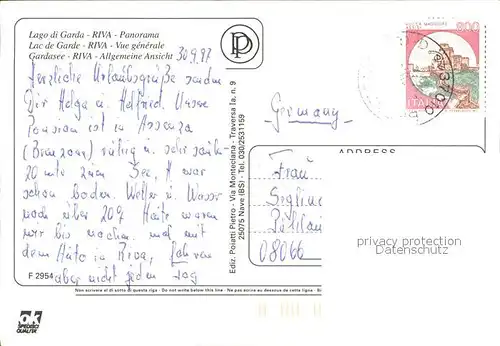 Lago di Garda - RIVA - Panorama
Lac de Garde - RIVA - Vue générale
Gardasee - RIVA - Allgemeine Ansicht
30.9.97
Herzliche Urlaubsgrüße senden
Dir Helga u. Helfried. Unsere
Pension ist in Assenza
(Brenzone) ruhig u. sehr
20 m zum See, H. war
schon baden. Wetter u. Wasser
noch über 20° Heute waren
wir bis mit
dem Auto in Riva, fahren
aber nicht jeden Tag
F 2954
Ediz. Poiatti Pietro - Via Monteclana - Traversa Ia, n. 9
25075 Nave (BS) - Tel. 030/2531159
Non scrivere al di sotto di questa riga - Do not write below this line - Ne pas écrire au dessous de cette ligne -
SPEDISCI
QUALI.SY
PP
800
ITALIA
37010
Germany
ADDRESS
Frau
08066
privacy protection
Datenschutz